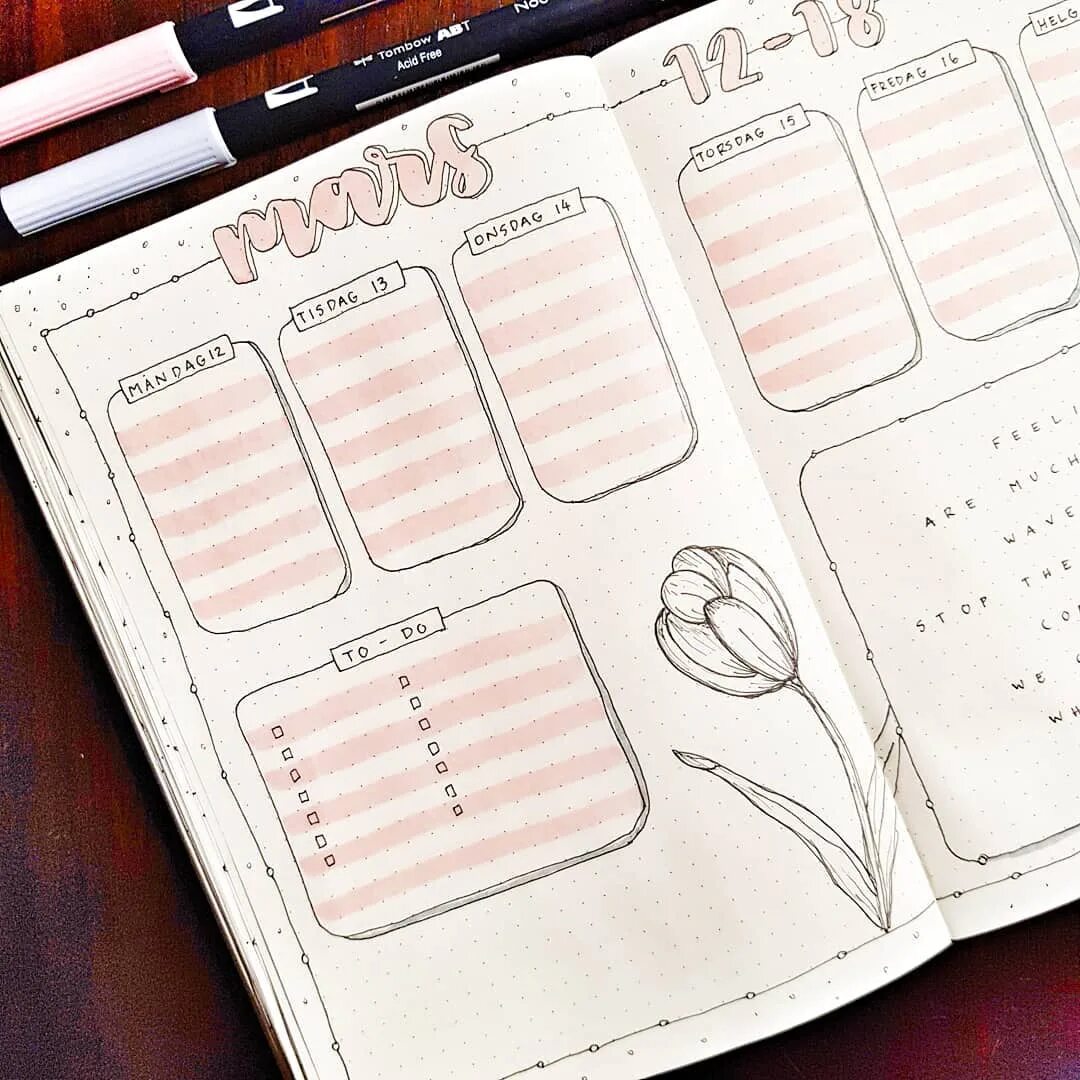 Tombow ABT
Acid Free
mars
12-18
MÅNDAG 12
TISDAG 13
ONSDAG 14
TORSDAG 15
FREDAG 16
HELG
TO-DO
ARE MUCH
STOP THE
WE